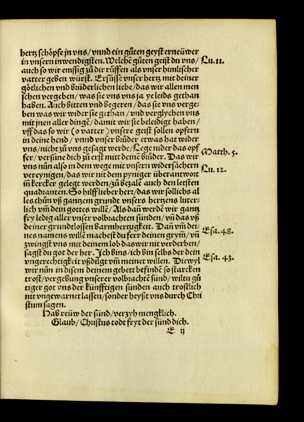 hertz schöpfe jn vns / vnnd ein gůten geyst erneüwer
in vnsern inwendigsten. Welche gůten geist du vns /
auch so wir emssig zů dir rüffen als vnser himlischer
vatter geben würst. Erfüllst vnser hertz mit deiner
götlichen vnd brůderlichen liebe / das wir allen men
schen vergeben / was sie vns vns ja ye leids gethan
haben. Auch bitten vnd begeren / das sie vns verge-
ben was wir wider sie gethan / vnd verglychen vns
mit jnen aller dingē / damit wir sie beleidigt haben /
vff das so wir (o vatter) vnsere geist sollen opfern
in deine hend / vnnd vnser brůder etwas hat wider
vns / nit zů vns gesagt werde / Lege nider das opf
fer / versüne dich zů erst mit deinē brůder. Das wir
vns nün also in dem wege mit vnsern widersächern
vereynigen / das wir nit dem pyniger überantwort
im̄ kercker gelegt werden / zů bezalē auch den leisten
quadranten. So hilff lieber herr / das wir sollichs al
les thůn vß gantzem grunde vnsers hertzens luter
lich vm̄ dem gottes wille / Als dañ werdē wir gantz
fry ledig aller vnser volbrachten sünden / vñ das vß
deiner grundtlosen Barmhertzigkeit. Dañ vm̄ dei-
nes namens willē machst du ferr deinen grym̄ / vñ
zwingst vns mit deinem lob das wir nit verderben /
sagst du got der herr. Ich bins / ich bin selbs der dein
vngerechtigkeit vßdilgt vm̄ meinet willen. Diewyl
wir nün in disem deinem gebett befindē so starcken
trost / vergebung vnserer volbrachtē sünd / wilt gü
tiger got vns der künfftigen sünden auch trostlich
mit vngewarnet lassen / sonder heyst vns durch Chri
stum sagen.
Hab reüw der sünd / verzyh mengklich.
Glaub / Christus todt fryt der sünd dich.
E ij
Lu. 11.
Matth. 5.
Lu. 12.
Esa. 48.
Esa. 43.